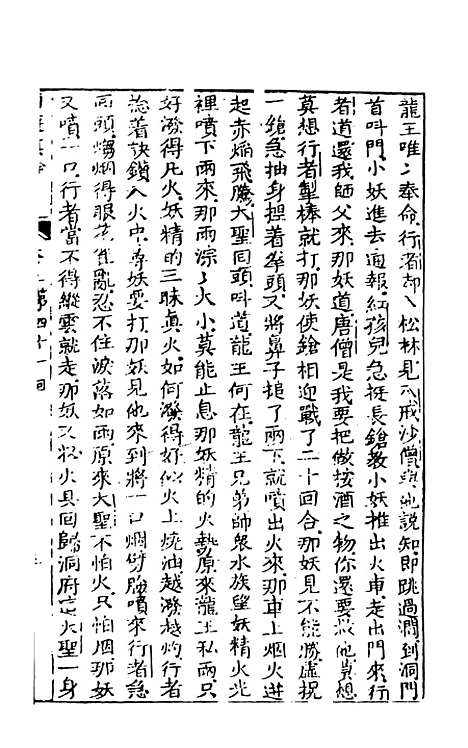 龍王唯〻奉命行者却入松林見八戒沙僧與他説知即跳過澗到洞門
首呌門小妖進去通報紅孩兒急挺長鎗教小妖推出火車走出門來行
者道還我師父來那妖道唐僧是我要把做按酒之物你還要救他莫想
莫想行者掣棒就打那妖使鎗相迎戰了二十回合那妖見不能勝虛棿
一鎗急抽身捏着拳頭又將鼻子搥了兩下就噴出火來那車上烟火迸
起赤焰飛騰大聖回頭呌道龍王何在龍王兄弟師衆水族望妖精火光
裡噴下雨來那雨淙〻火小莫能止息那妖精的火勢原來龍王私雨只
好潑得凡火妖精的三昧真火如何潑得好似火上焼油越潑越灼行者
捻着訣鑽入火中尋妖要打那妖見他來到將一口烟劈臉噴來行者急
回頭煼烟得眼花雀亂忍不住淚落如雨原來大聖不怕火只怕烟那妖
又噴一口行者當不得縱雲就走那妖又將火具回歸洞府這大聖一身
第四十一回